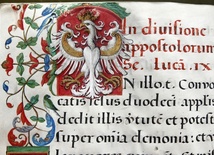 In diuisione
appostolorum
Sc. Luca. IX
IN illo t. Conuo
catis Iesus duodeci appl
dedit illis v̄tutē et potest
super omnia demonia: et